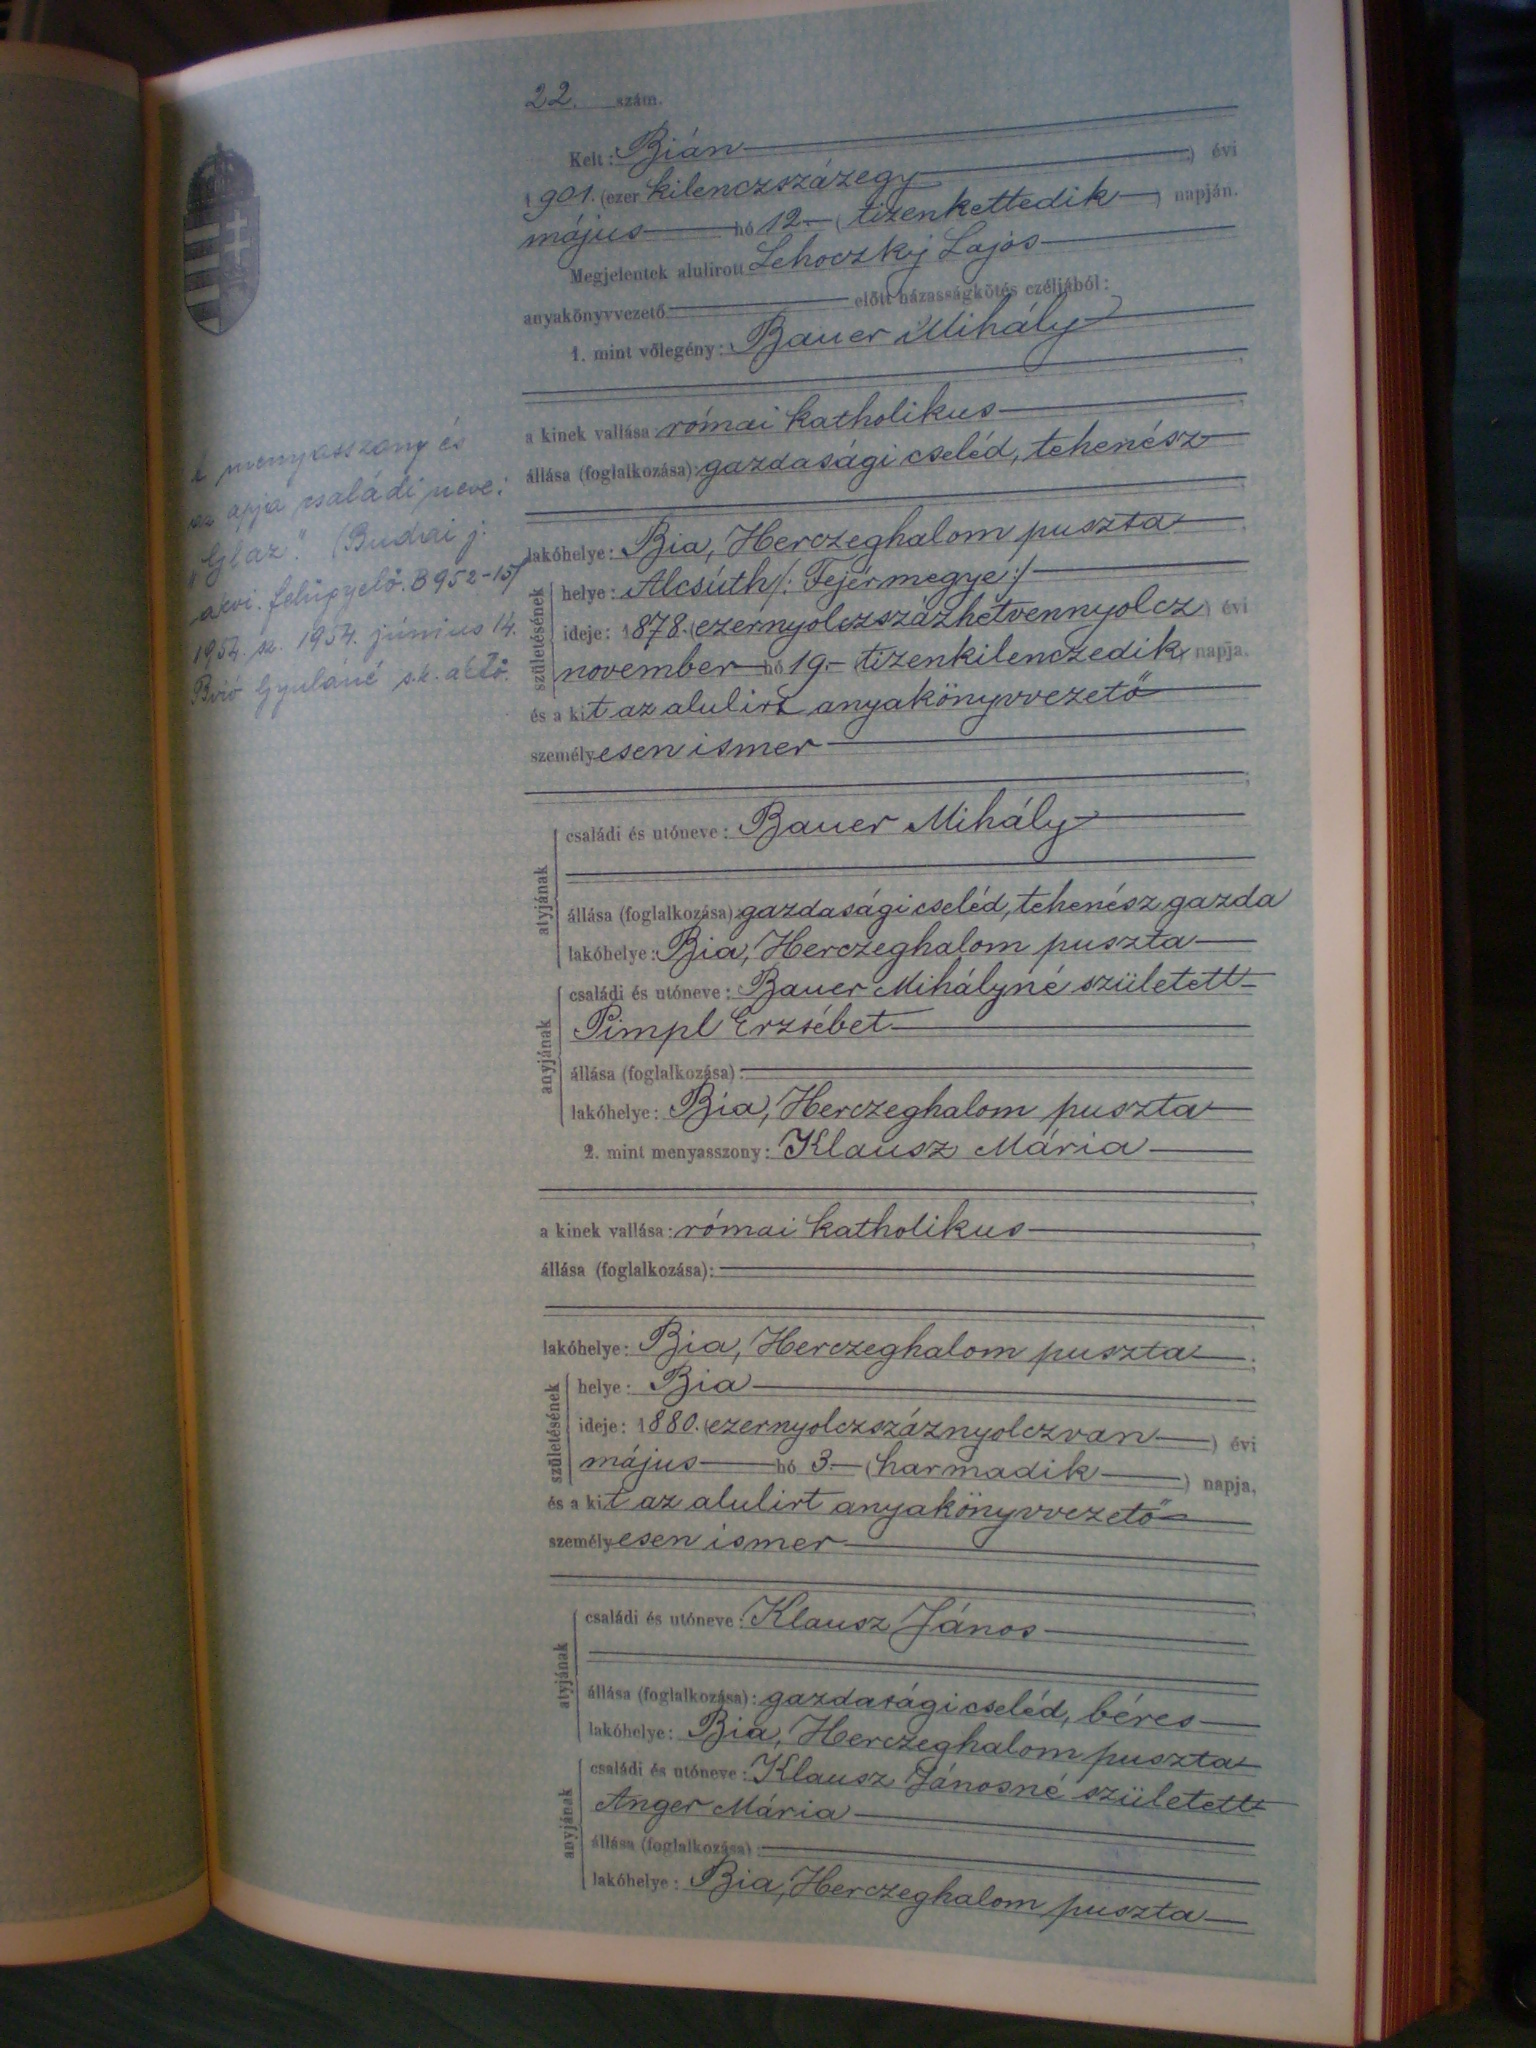 22. szám.
Kelt: Bián
1901. (ezer kilenczszázegy) évi
május hó 12. (tizenkettedik) napján.
Megjelentek alulirott Lehoczky Lajos
anyakönyvvezető előtt házasságkötés czéljából:
1. mint vőlegény: Bauer Mihály
a kinek vallása: római katholikus
állása (foglalkozása): gazdasági cseléd, tehenész
lakóhelye: Bia, Herczeghalom puszta
születésének
helye: Alcsúth /: Fejérmegye :/
ideje: 1878. (ezernyolczszázhetvennyolcz) évi
november hó 19. (tizenkilenczedik) napja,
és a kit az alulirt anyakönyvvezető
személyesen ismer
atyjának
családi és utóneve: Bauer Mihály
állása (foglalkozása): gazdasági cseléd, tehenész gazda
lakóhelye: Bia, Herczeghalom puszta
anyjának
családi és utóneve: Bauer Mihályné született
Pimpl Erzsébet
állása (foglalkozása):
lakóhelye: Bia, Herczeghalom puszta
2. mint menyasszony: Klausz Mária
a kinek vallása: római katholikus
állása (foglalkozása):
lakóhelye: Bia, Herczeghalom puszta
születésének
helye: Bia
ideje: 1880. (ezernyolczszáznyolczvan) évi
május hó 3. (harmadik) napja,
és a kit az alulirt anyakönyvvezető
személyesen ismer
atyjának
családi és utóneve: Klausz János
állása (foglalkozása): gazdasági cseléd, béres
lakóhelye: Bia, Herczeghalom puszta
anyjának
családi és utóneve: Klausz Jánosné született
Anger Mária
állása (foglalkozása):
lakóhelye: Bia, Herczeghalom puszta
A menyasszony és
az apja családi neve:
(Budai j.
akvi. felügyelő. B 952-15/
1954. sz. 1954. június 14.
Biró Gyuláné s.k.